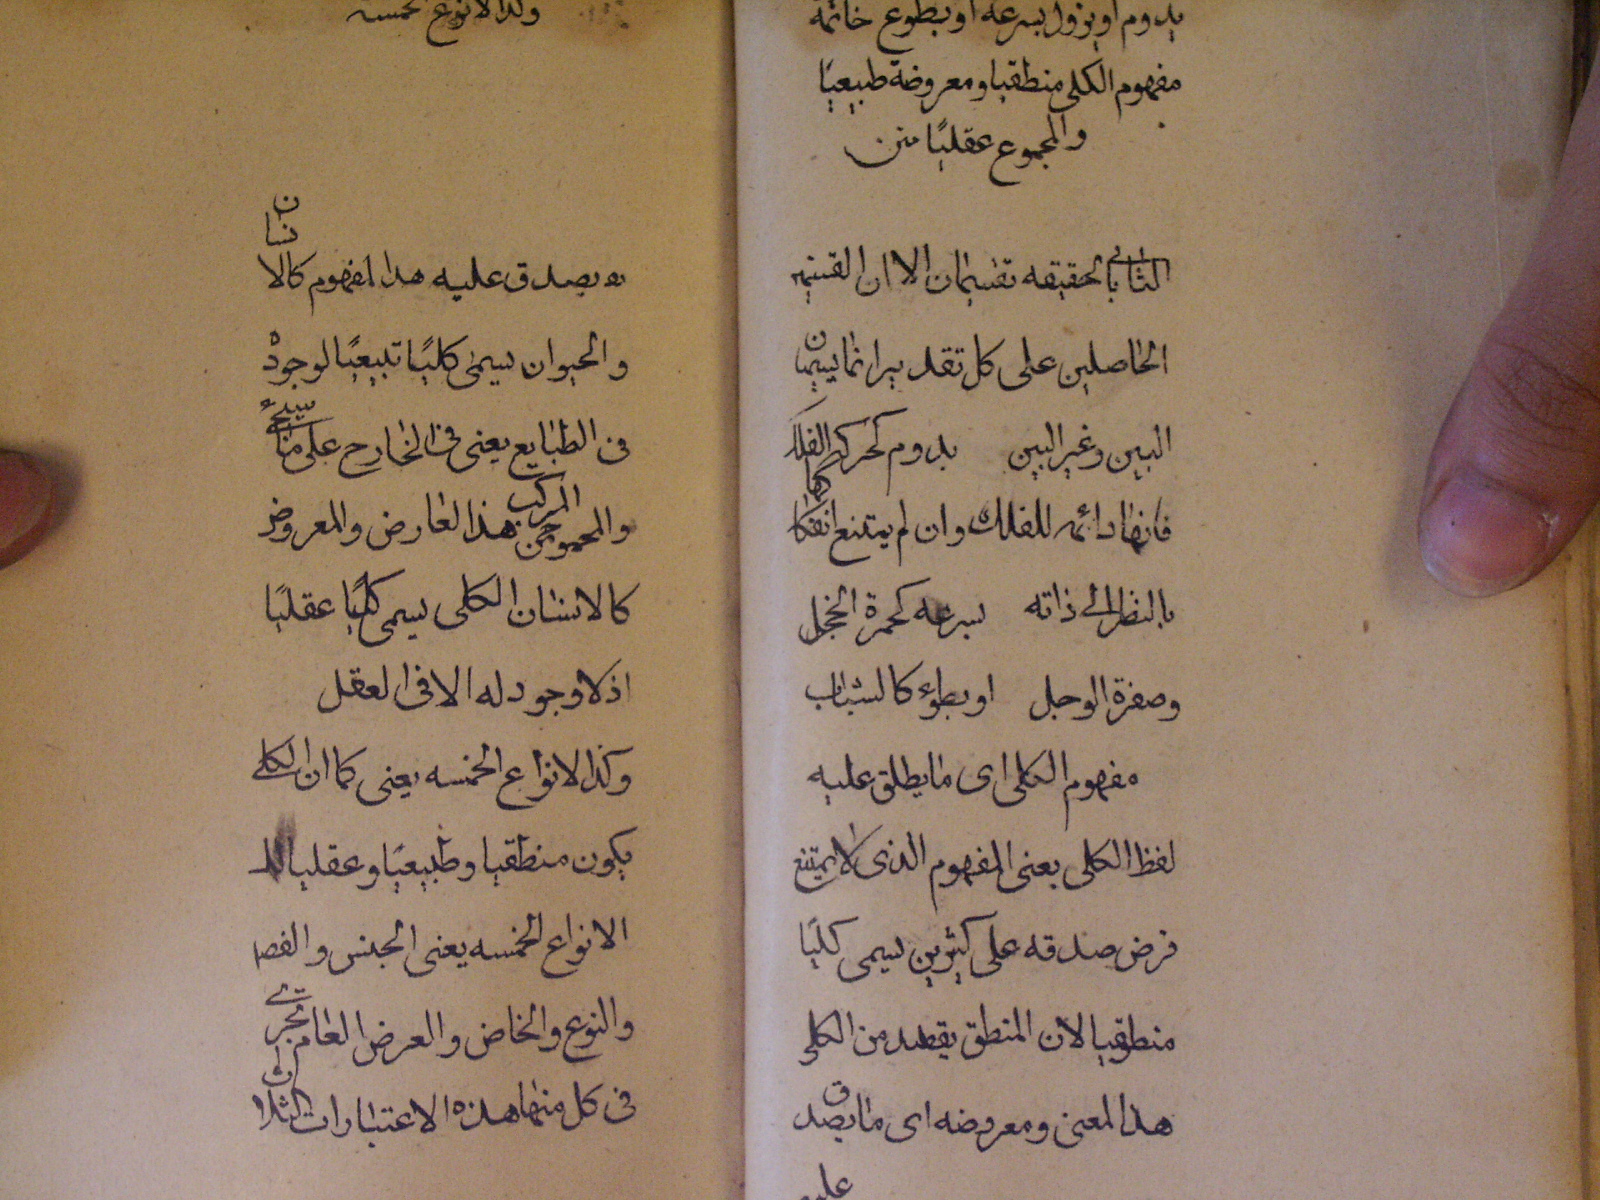 يدوم او يزول بسرعه او بطوع خاتمة
مفهوم الكلى منطقيا ومعروضة طبيعيًا
والمجموع عقليًا من
الثانى بالحقيقه تقسيمان الا ان القسمين
الحاصلين على كل تقدير انما يسميان
البين وغير البين يدوم كحركة الفلك
فانها دائمه للفلك وان لم يمتنع انفكاكها
بالنظر الى ذاته بسرعه كحمرة الخجل
وصفرة الوجل او بطوء كالشباب
مفهوم الكلى اى ما يطلق عليه
لفظ الكلى يعنى المفهوم الذى لا يمتنع
فرض صدقه على كثيرين يسمى كليًا
منطقيا لان المنطق يقصد من الكلى
هذا المعنى ومعروضه اى ما يصدق
عليه
وكذا الانوع الخمسه
يصدق عليه هذا المفهوم كالانسان
والحيوان يسمى كليًا تبيعيًا لوجوده
فى الطبايع يعنى فى الخارج على ما سيجئ
والمجموع المركب من هذا العارض والمعروض
كالانسان الكلى يسمى كليًا عقليًا
اذ لا وجود له الا فى العقل
وكذا الانواع الخمسه يعنى كما ان الكلى
يكون منطقيا وطبيعيًا وعقليا
الانواع الخمسه يعنى الجنس والفصل
والنوع والخاص والعرض العام تجرى
فى كل منها هذه الاعتبارات الثلاث